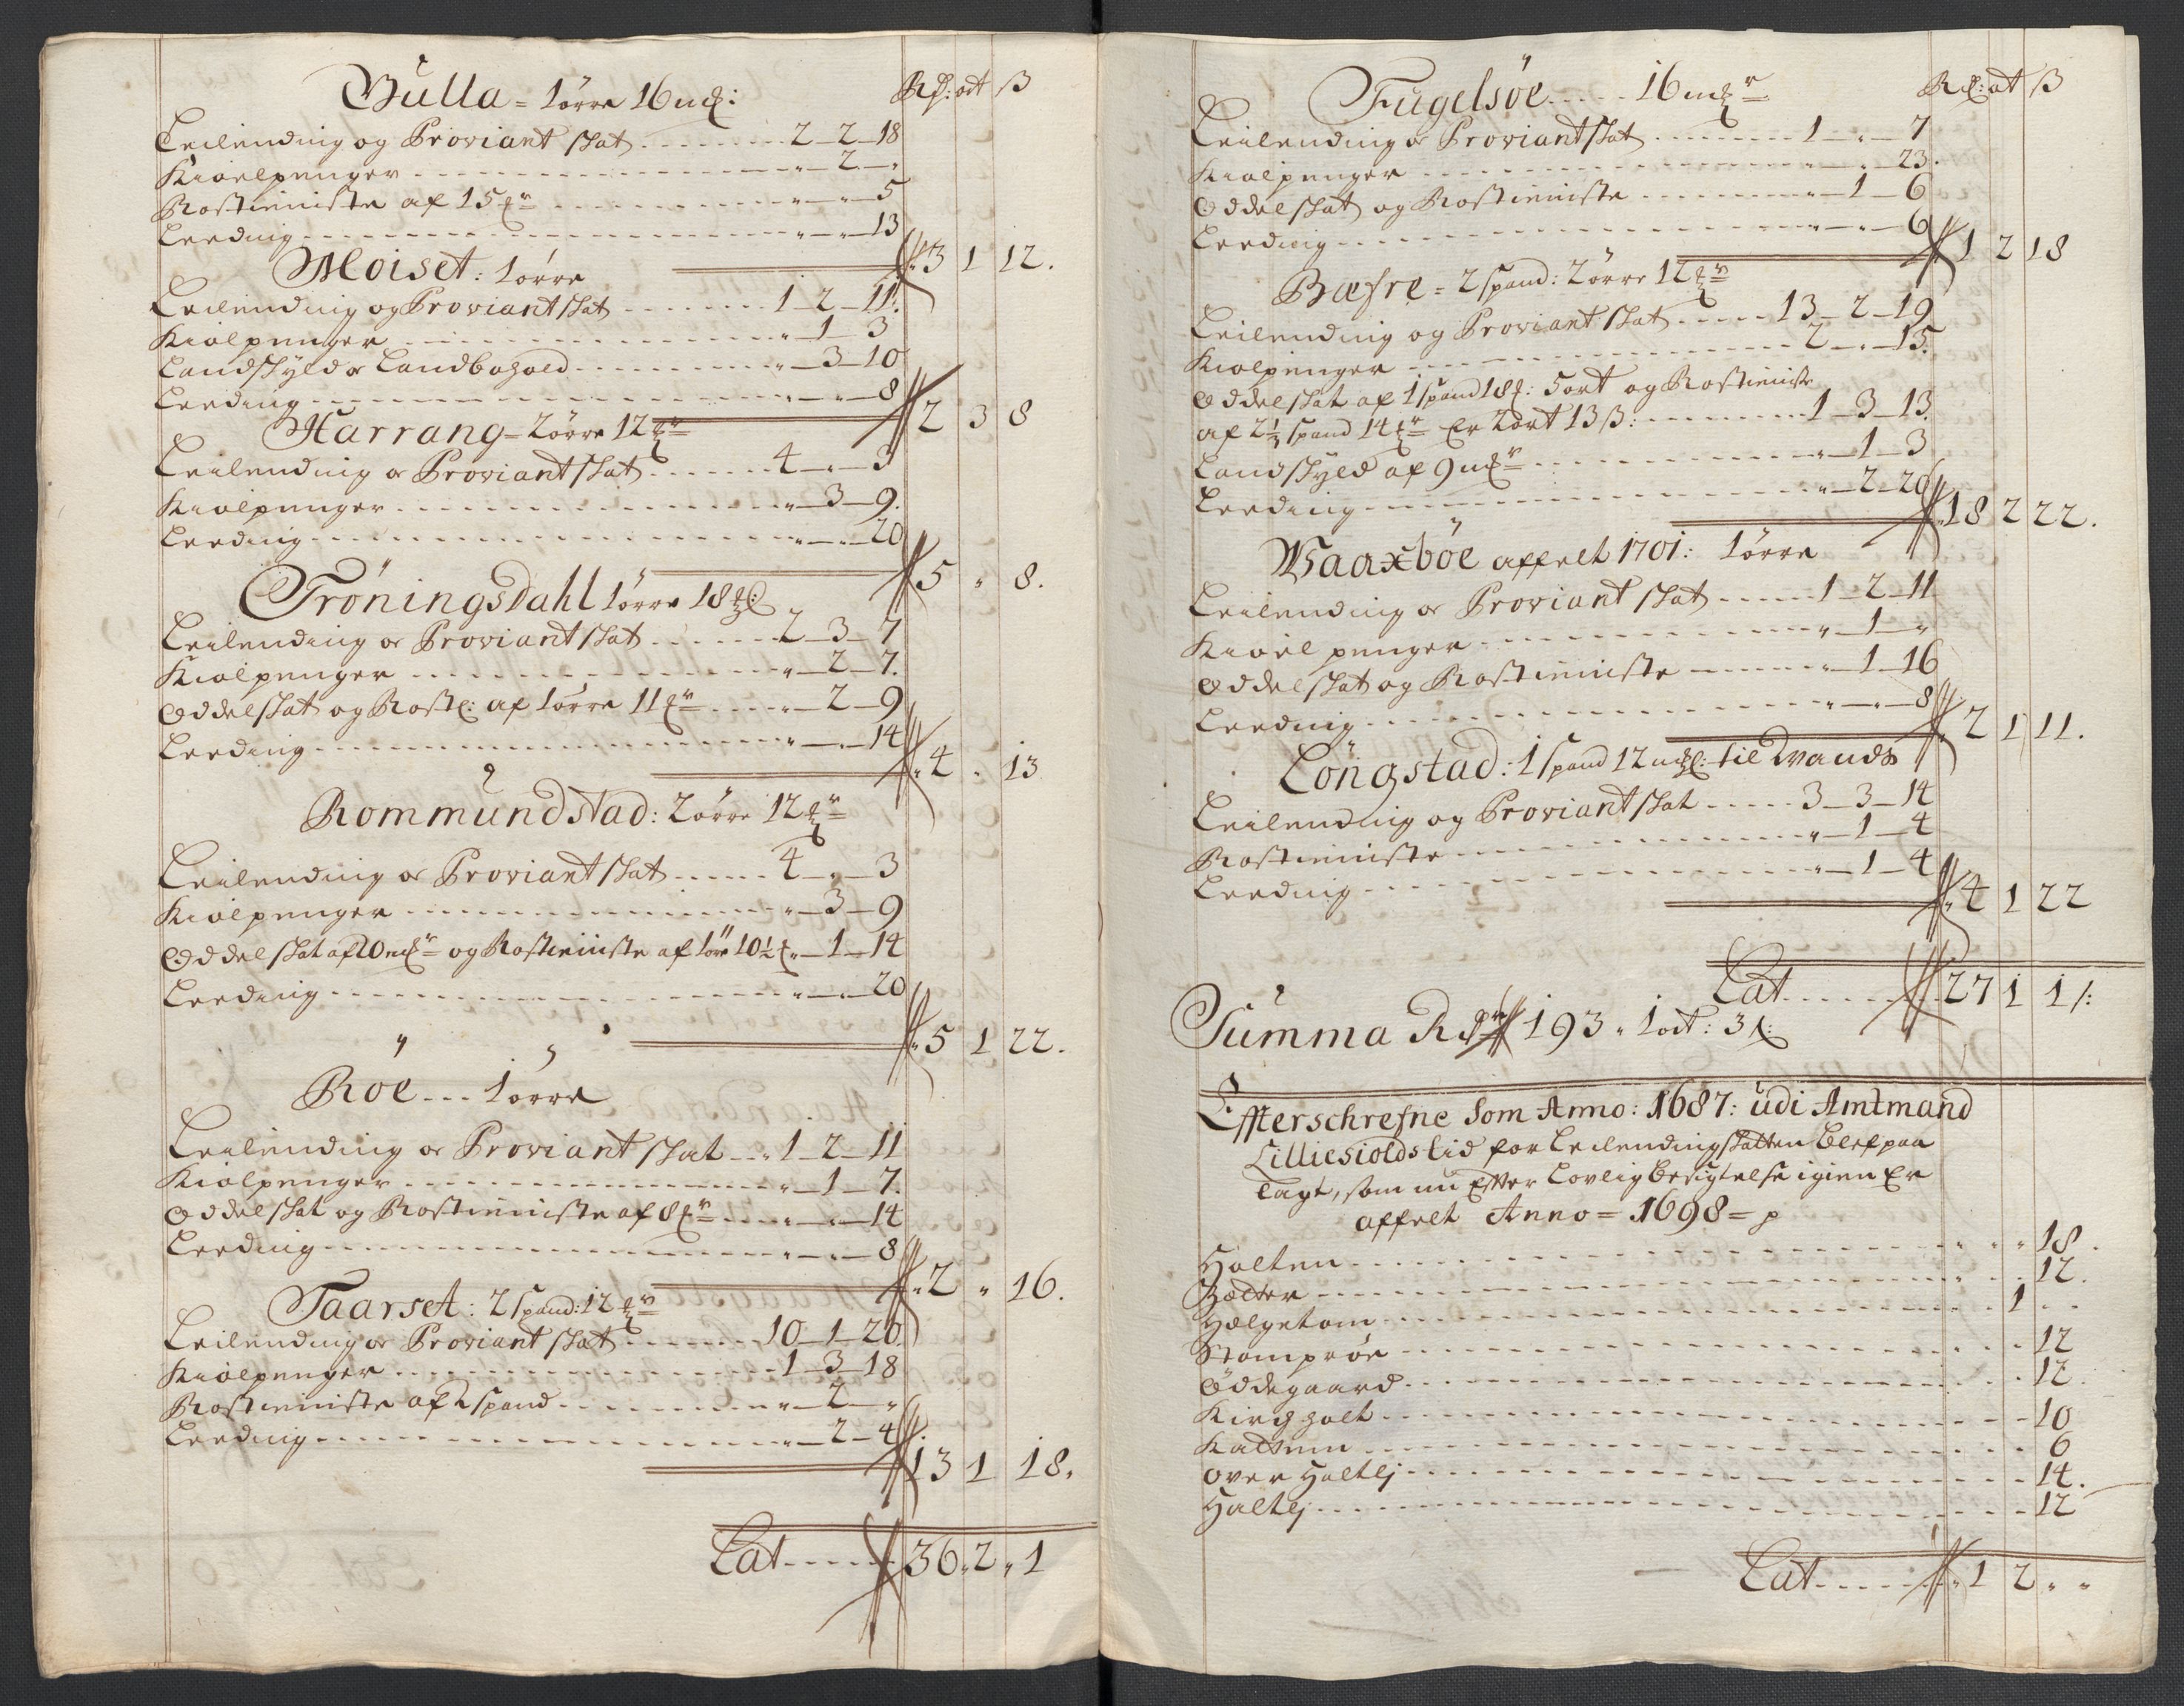 Bulla = 1 ørre 16 mk: Rdr: ort ß
Leilending og Proviant skat 2 - 2 - 18
Kiøelpenger " - 2 - "
Rostieniste af 15 " - " - 5
Leeding " - " - 13
3 1 12.
Moiset: 1 ørre
Leilending og Proviant skat 1 - 2 - 11.
Kiølpenger " - 1 - 3
Landskyld or Landbohold " - 3 - 10
Leeding " - " - 8
2 3 8
Harrang = 2 ørre 12
Leilending or Proviant skat 4 - " - 3
Kiølpenger " - 3 - 9.
Leeding " - " - 20
5 " 8.
Tröningsdahl 1 ørre 18
Leilending or Proviant skat 2 - 3 - 7
Kiølpenger " - 2 - 7.
Oddelskat og Rost: af 1 ørre 11 " - 2 - 9
Leeding " - " - 14
4 " 13
Rommundstad: 2 ørre 12
Leilending or Proviant skat 4 - " - 3
Kiølpenger " - 3 - 9
Oddelskat af 20 mk og Rostieniste af 1 ørre 10½ " - 1 - 14
Leeding " - " - 20
5 1 22.
Roe 1 ørre
Leilending or Proviant skat 1 - 2 - 11
Kiølpenger " - 1 - 7.
Oddelskat og Rostieniste af 8 " - " - 14
Leeding " - " - 8
2 " 16.
Taarset: 2 spand: 12
Leilending or Proviant skat 10 - 1 - 20.
Kiølpenger 1 - 3 - 18
Rostieniste af 2 spand " - 2 - "
Leeding " - 2 - 4
13 1 18.
Lat 36 " 2 " 1
Fugelsöe 16 mk Rdr: ort ß
Leilending or Proviant skat 1 - " - 7
Kiølpenger " - " - 23.
Oddelskat og Rostieniste " - 1 - 6
Leeding " - " - 6
1 2 18
Bæfre = 2 spand: 2 ørre 12
Leilending og Proviant skat 13 - 2 - 19
Kiølpenger 2 - " - 15.
Oddelskat af 1 spand 18: 5 ort og Rostieniste
af 2½ spand 14 Er 2 ort 13 ß: 1 - 3 - 13.
Landskyld af 9 mk " - 1 - 3
Leeding " - 2 - 20
18 2 22.
Waaxböe affelt 1701: 1 ørre
Leilending or Proviant skat 1 - 2 - 11
Kiøel penger " - 1 - "
Oddelskat og Rostieniste " - 1 - 16
Leeding " - " - 8
2 1 11.
Löngstad: 1 spand 12 mk: til Waands
Leilending og Proviant skat 3 - 3 - 14
Rostieniste " - 1 - 4
Leeding " - 1 - 4
4 1 22
Lat 27 1 1
Summa Rdr 193 " 1 ort: 3 ß:
Effterschrefne Som Anno: 1687: udi Amtmand
Lilliesiolds tid for Leilendingskatten blef paa
lagt, som nu Effter Lovlig besigtelse igien Er
affelt Anno = 1698 =
Holten " " 18.
Holter " " 12.
Helgetom " 1 "
Stomprøe " " 12
Öddegaard " " 12.
Kirchholt " " 10
Kattem " " 6
over Haltlj " " 14.
Haltlj " " 12
Lat 1 2 " "